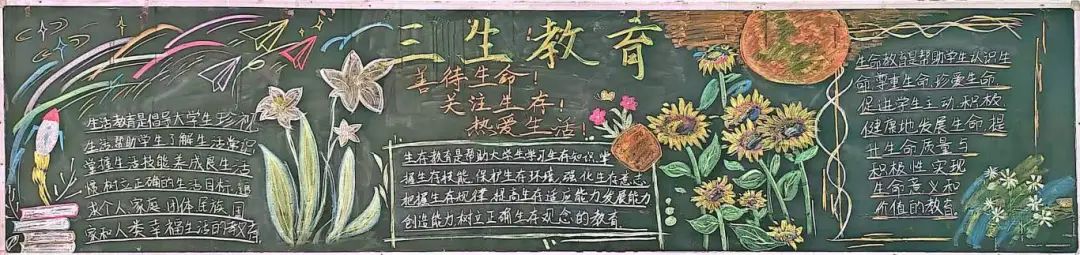 三生教育
善待生命!
关注生存!
热爱生活!
生活教育是倡导大学生珍视
生活帮助学生了解生活常识
掌握生活技能养成良生活
惯树立正确的生活目标,
求个人,家庭,团体,民族,国
家和人类幸福生活的教育
生存教育是帮助大学生学习生存知识,掌
握生存技能,保护生存环境,强化生存意志
把握生存规律,提高生存适应能力发展能力
创造能力,树立正确生存观念的教育
生命教育是帮助学生认识生
命,尊重生命,珍爱生命
促进学生主动,积极
健康地发展生命,提
升生命质量与
积极性,实现
生命意义和
价值的教育